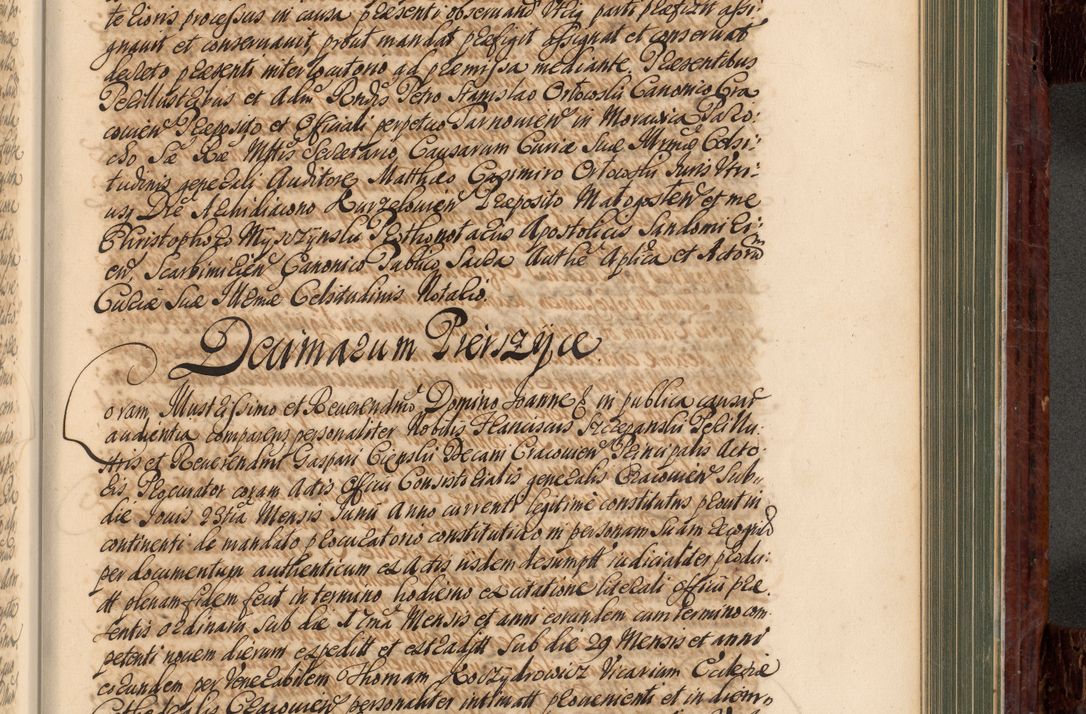 te Eioris processus in causa praesenti observand Itaq parti praefixit assi-
gnavit et conservavit prout mandat praefigit assignat et conservat
decreto praesenti interlocutorio ad praemissa mediante. Praesentibus
Perillustribus et Admodu Rndis Petro Stanislao Orłowski Canonico Cra
covien Praeposito et Officiali perpetuo Tarnovien in Morawica Paro:
cho Sae Rae Mttis Secretario Causarum Curiae Suae Illmae Celsi:
tudinis generali Auditore, Matthaeo Casimiro Orłowski Juris Utri-
usq Dre Archidiacono Kurzelovien Praeposito Małogosten et me
Christophoro Myszzynski Prothonotario Apostolico Sandomiri
en Scarbimirien Canonico Publico Sacra Authe Aplica et Actoru
Curiae Suae Illmae Celsitudinis Notario.
Decimarum Pierszyce
Coram Illustrissimo et Reverendmo Domino Joanne in publica causar
audientia comparens personaliter Nobilis Franciscus Szczepanski Perillu-
stris et Reverendmi Gaspari Cienski Decani Cracovien Principalis Acto-
ris, Procurator coram Actis Officii Consistorialis generalis Cracovien Sub
die Jovis 23tia Mensis Junii Anno currenti legitime constitutus prout in
continenti de mandato procuratorio constitutivo in personam suam recognito
per documentum authenticum ex Actis iisdem desumptt judicialiter produ-
ctt plenam fidem fecit in termino hodierno ex citatione literali officii prae
sentis ordinarii sub die 17ma Mensis et anni eorundem cum termino com
petenti novem dierum expeditt et extraditt sub die 29 Mensis et anni
eorundem per Venerabilem Thomam Koszydrowicz Vicarium Ecclesiae
Cathedralis Cracovien personaliter intimatt provenienti et in diem